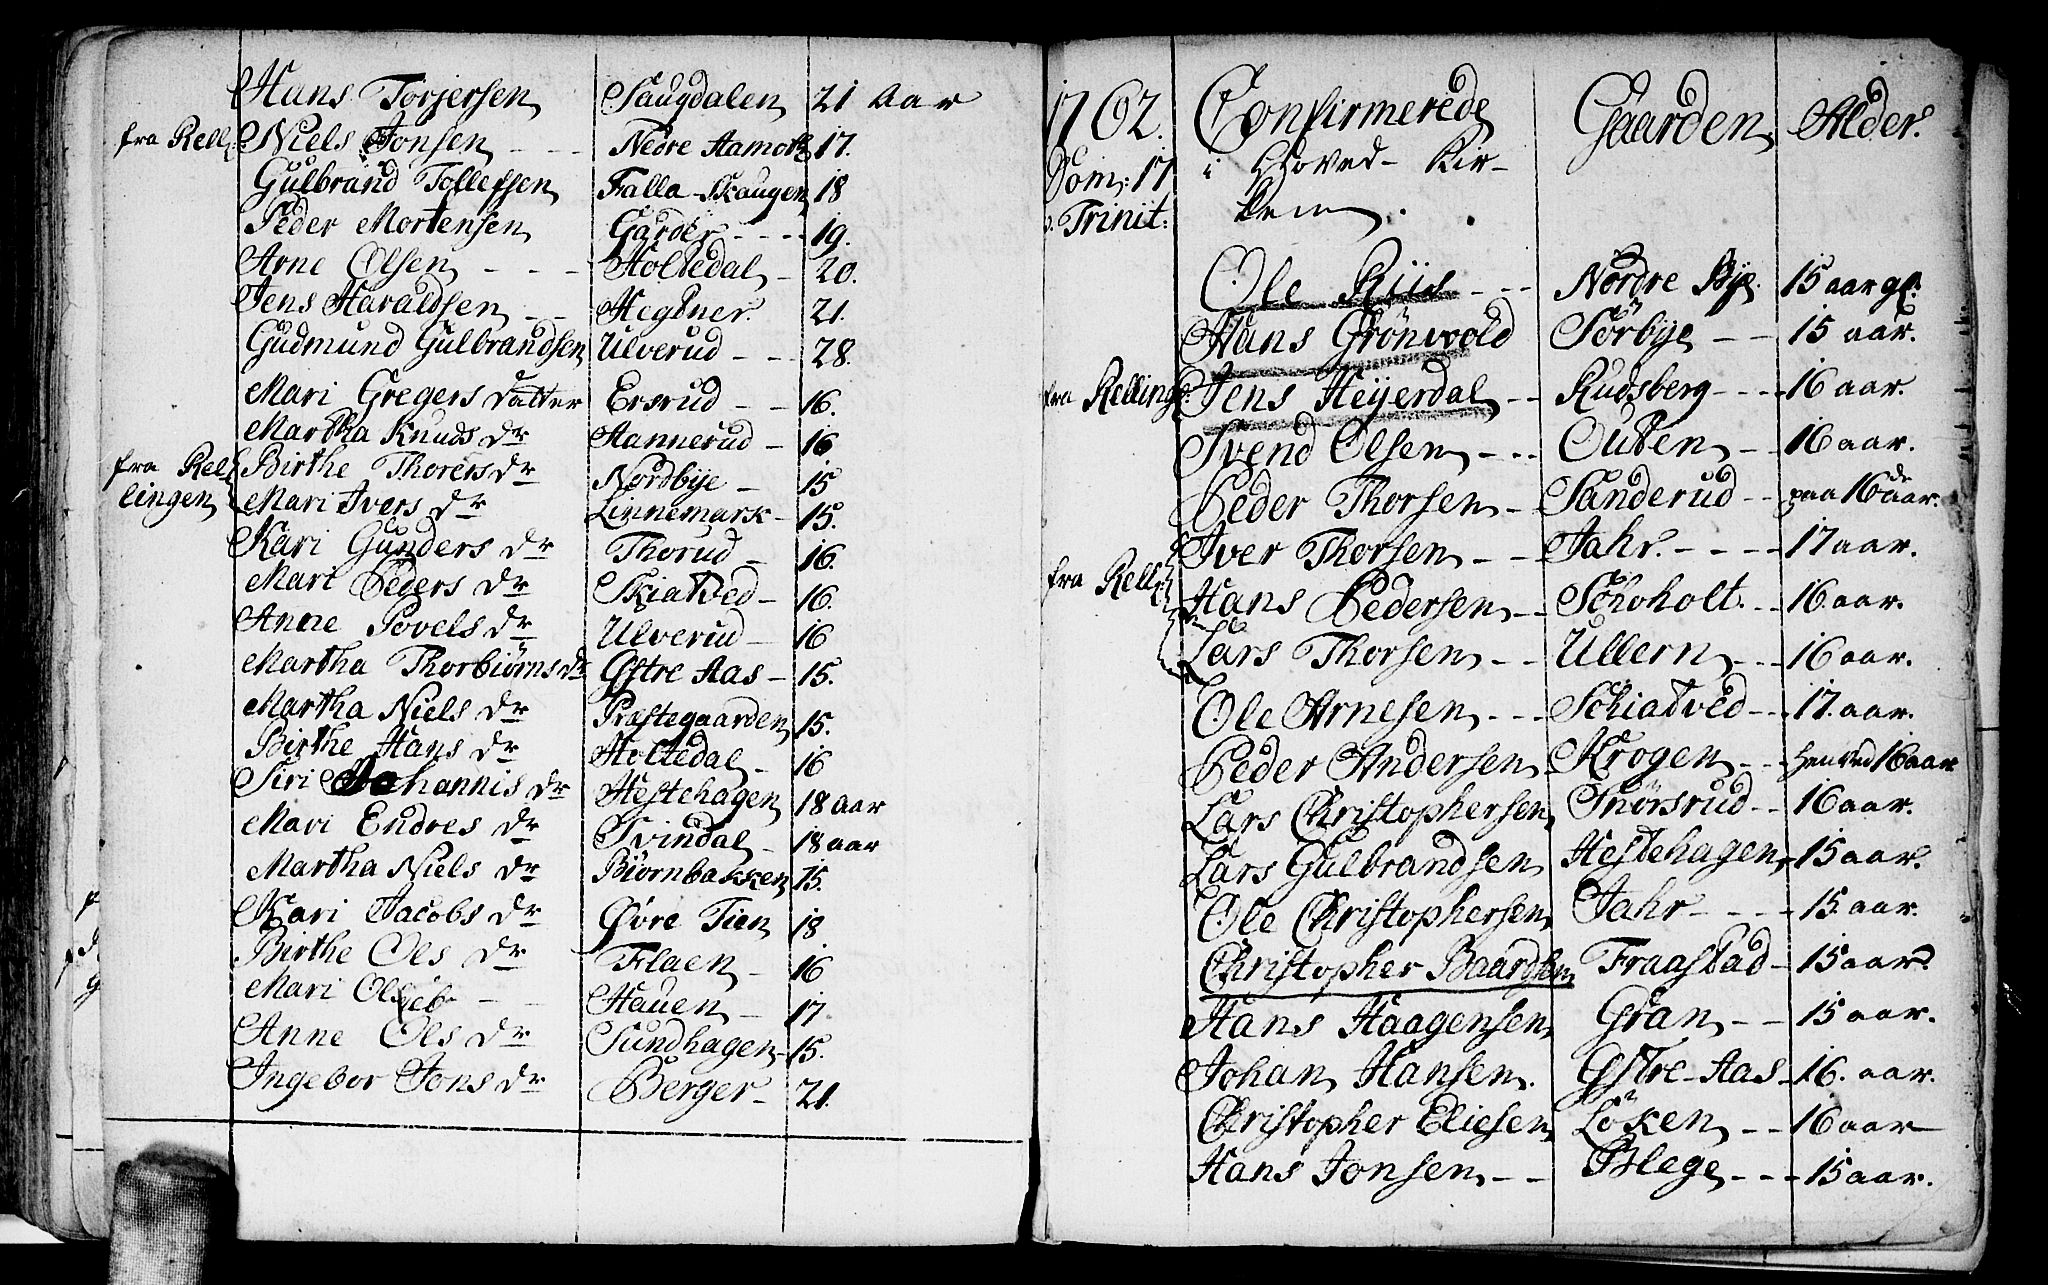 Hans Torjersen Saugdalen 21 Aar
fra Rell: Niels Jonsen - - - Nedre Aamork 17.
Gulbrand Tollefsen Falla-Skaugen 18
Peder Mortensen Garder - - - 19.
Arne Olsen - - - Holtedal - 20.
Jens Haraldsen - - Hegtner. 21.
Gudmund Gulbrandsen Ulverud - - 28.
Mari Gregers datter Ersrud - - 16.
Martha Knuds dr Hannerud - 16
fra Rel- Birthe Thorers dr Nordbye - 15
lingen Mari Ivers dr Linnemark - 15.
Kari Gunders dr Thorud - 16.
Mari Peders dr Skiatved - 16.
Anne Povels dr Ulverud - 16
Martha Thorbiørns dr Østre Aas - 15.
Martha Niels dr Præstegaarden 15.
Birthe Hans dr Holtedal - 16
Siri Johannis dr Hestehagen 18 aar
Mari Endres dr Svindal - 18 aar
Martha Niels dr Biørnbakken 15.
Kari Jacobs dr Øvre Tien 18
Birthe Ols dr Flaen - 16
Mari Ols - - Hauen - 17.
Anne Ols dr Sundhagen - 15.
Ingebor Jons dr Berger - 21.
1762. Confirmerede Gaarden Alder.
Dom: 17 i Hoved-Kir-
p. Trinit: ken.
Ole Riis - - - Nordre Bye. 15 aar gl.
Hans Grönvold Sörbye - - 15 aar.
fra Relling: Jens Heyerdal - - Rudsberg - - - 16 aar.
Svend Olsen - - - Outen - - 16 aar.
Peder Thorsen - Sanderud - - paa 16de aar.
Iver Thorsen - - Jahr. - - - - 17 aar.
fra Rell: Hans Pedersen - - Schoholt. - - 16 aar.
Lars Thorsen - - Ullern - - - 16 aar.
Ole Arnesen - - - Schiatved - - - 17 aar.
Peder Andersen Krogen - - - henved 16 aar
Lars Christophersen Snörsrud - - 16 aar.
Lars Gulbrandsen Hestehagen - 15 aar.
Ole Christophersen Jahr - - - - 15 aar.
Christopher Baardsen Fraastad - 15 aar.
Hans Haagensen Gran - - 15 aar.
Johan Hansen. Østre-Aas - 16. aar.
Christopher Eliesen Löken - - 16 aar
Hans Jonsen - - Blege - - - 15 aar.